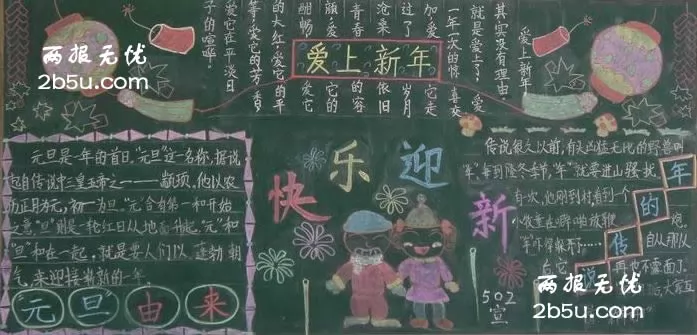 两报无优
2b5u.com
爱上新年
爱上新年
其实没有理由。
就是爱上了，爱
一年一次的惊喜交
加，爱它走
过了岁月
沧桑依旧
青春的容
颜，爱它的
甜畅爱它
的大红，爱它的平
等，爱它的芳香
爱它在平淡日
子的喧哗
元旦是一年的首日，“元旦”这一名称，据说
起自传说中三皇五帝之一——颛顼，他以农
历正月为元，初一为旦。“元”含有第一和开始
之意，“旦”则是一轮红日从地面升起。“元”和
“旦”和在一起，就是要人们以蓬勃朝
气，来迎接崭新的一年。
“元旦”由来
快乐迎新
传说很久以前，有头凶猛无比的野兽叫
“年”每到隆冬季节，“年”就要进山骚扰，
有一次，他刚到村看到一个
小牧童在噼啪放鞭
“年”吓得躲开了……
自从那以
再也不露面了。
年的传说
502
宣
两报无优
2b5u.com